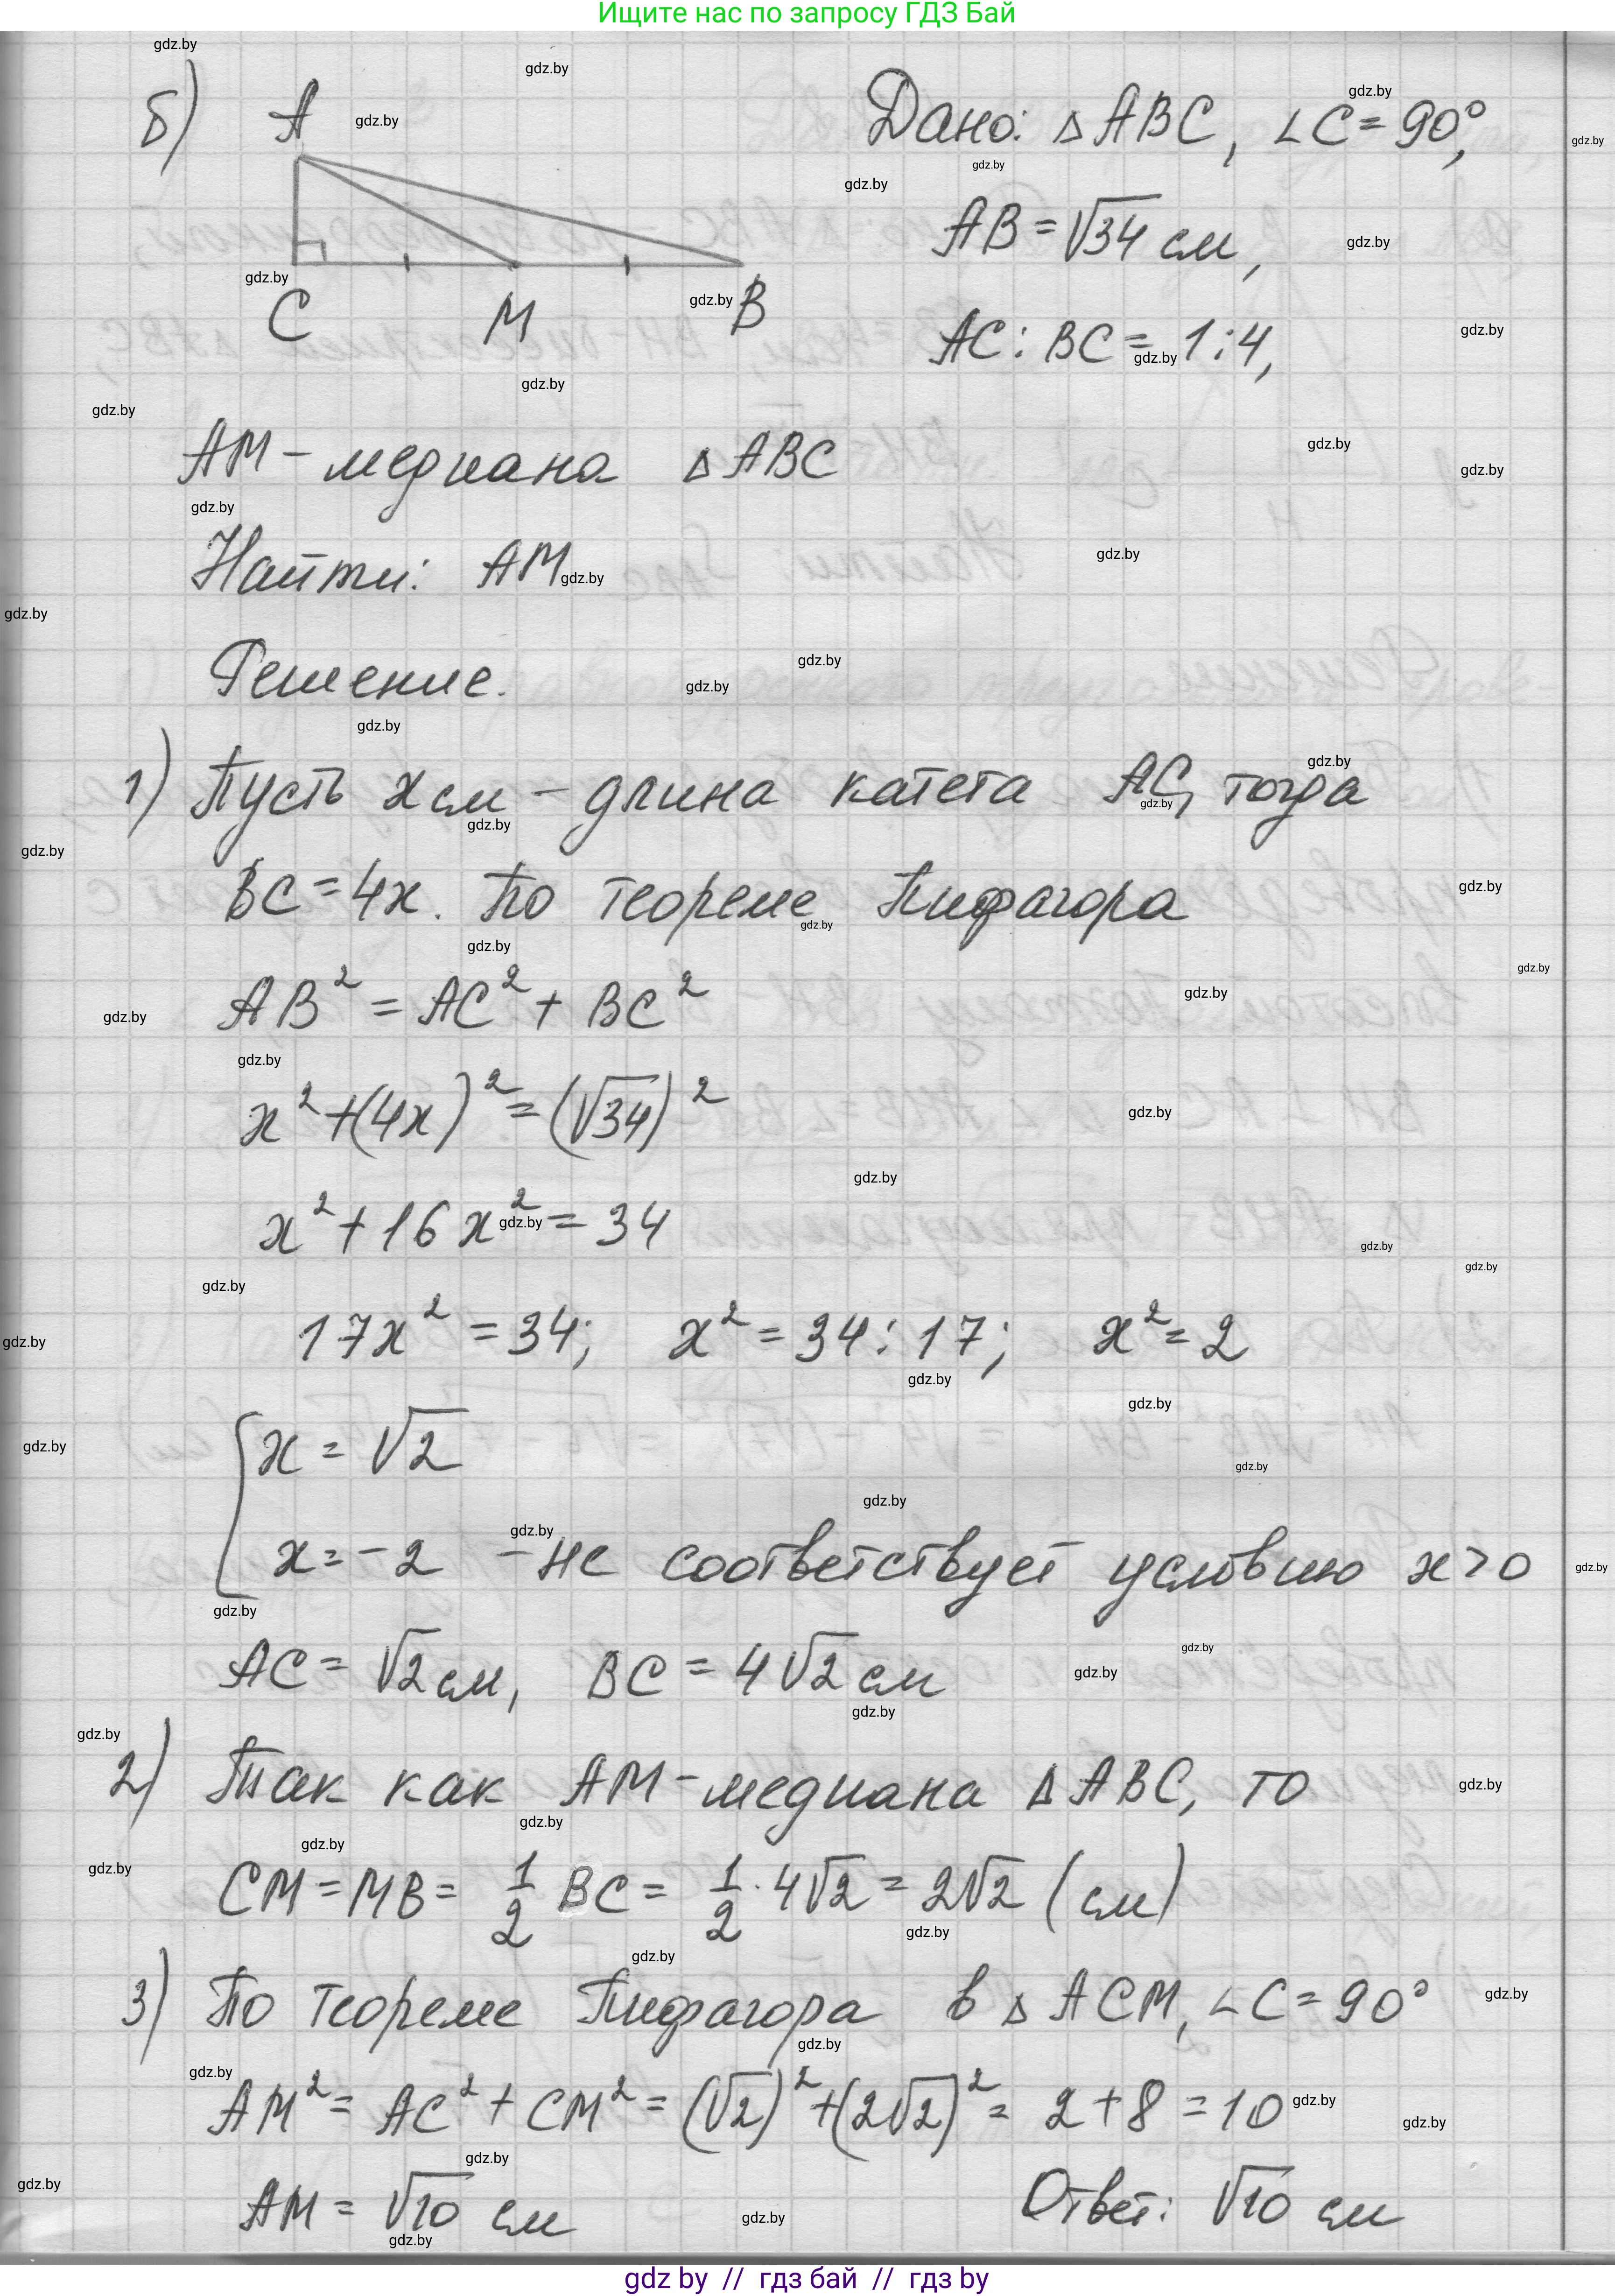 Ищите нас по запросу ГДЗ Бай
б) A
Дано: △ABC, ∠C = 90°,
AB = √34 см,
C M B
AC : BC = 1:4,
AM – медиана △ABC
Найти: AM
Решение.
1) Пусть x см – длина катета AC, тогда
BC = 4x. По теореме Пифагора
AB² = AC² + BC²
x² + (4x)² = (√34)²
x² + 16x² = 34
17x² = 34; x² = 34 : 17; x² = 2
[x = √2
x = -2 – не соответствует условию x > 0
AC = √2 см, BC = 4√2 см
2) Так как AM – медиана △ABC, то
CM = MB = 1/2 BC = 1/2 · 4√2 = 2√2 (см)
3) По теореме Пифагора в △ACM, ∠C = 90°
AM² = AC² + CM² = (√2)² + (2√2)² = 2 + 8 = 10
AM = √10 см
Ответ: √10 см
gdz by // гдз бай // гдз by